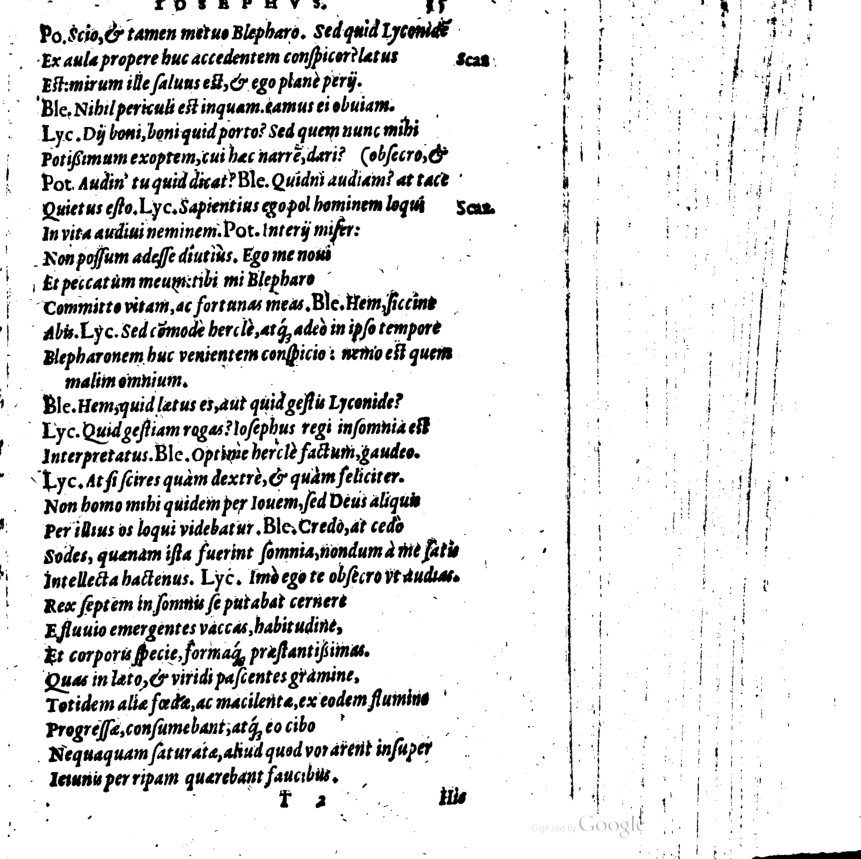 IOSEPHVS.
Po. Scio, & tamen metuo Blepharo. Sed quid Lyconidē
Ex aula propere huc accedentem conſpicor? lætus Scaz
Eſt: mirum ille ſaluus eſt, & ego planè perij.
Ble. Nihil periculi eſt inquam. eamus ei obuiam.
Lyc. Dij boni, boni quid porto? Sed quem nunc mihi
Potißimum exoptem, cui hæc narrē, dari? (obſecro, &
Pot. Audin' tu quid dicat? Ble. Quidni audiam? at tace
Quietus eſto. Lyc. Sapientius ego pol hominem loqui Scaz.
In vita audiui neminem. Pot. Interij miſer:
Non poſſum adeſſe diutiùs. Ego me noui
Et peccatum meum: tibi mi Blepharo
Committo vitam, ac fortunas meas. Ble. Hem, ſiccine
Abis. Lyc. Sed cōmodè herclè, atq; adeò in ipſo tempore
Blepharonem huc venientem conſpicio: nemo eſt quem
malim omnium.
Ble. Hem, quid lætus es, aut quid geſtis Lyconide?
Lyc. Quid geſtiam rogas? Ioſephus regi inſomnia eſt
Interpretatus. Ble. Optimè herclè factum, gaudeo.
Lyc. At ſi ſcires quàm dextrè, & quàm feliciter.
Non homo mihi quidem per Iouem, ſed Deus aliquis
Per illius os loqui videbatur. Ble. Credo, at cedò
Sodes, quænam iſta fuerint ſomnia, nondum à me ſatis
Intellecta hactenus. Lyc. Imò ego te obſecro vt audias.
Rex ſeptem in ſomnis ſe putabat cernere
E fluuio emergentes vaccas, habitudine,
Et corporis ſpecie, formaq; præſtantißimas.
Quas in læto, & viridi paſcentes gramine,
Totidem aliæ fœdæ, ac macilentæ, ex eodem flumine
Progreſſæ, conſumebant, atq; eo cibo
Nequaquam ſaturatæ, aliud quod vorarent inſuper
Ieiunis per ripam quærebant faucibus.
T 2 His
Digitized by Google